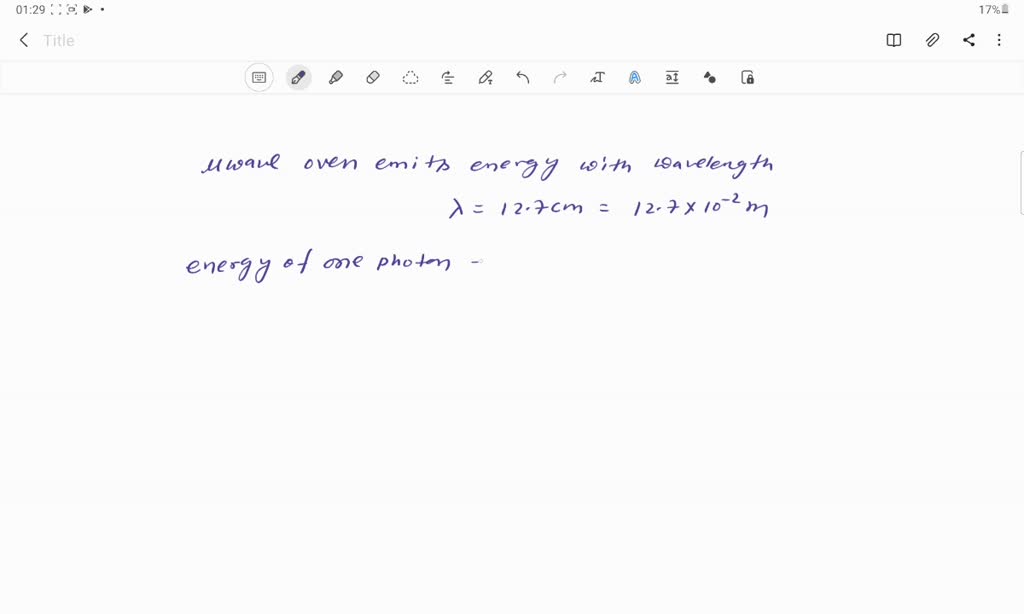 01:29
17%
Title
μwave oven emits energy with wavelength
λ = 12.7cm = 12.7 × 10⁻² m
energy of one photon -